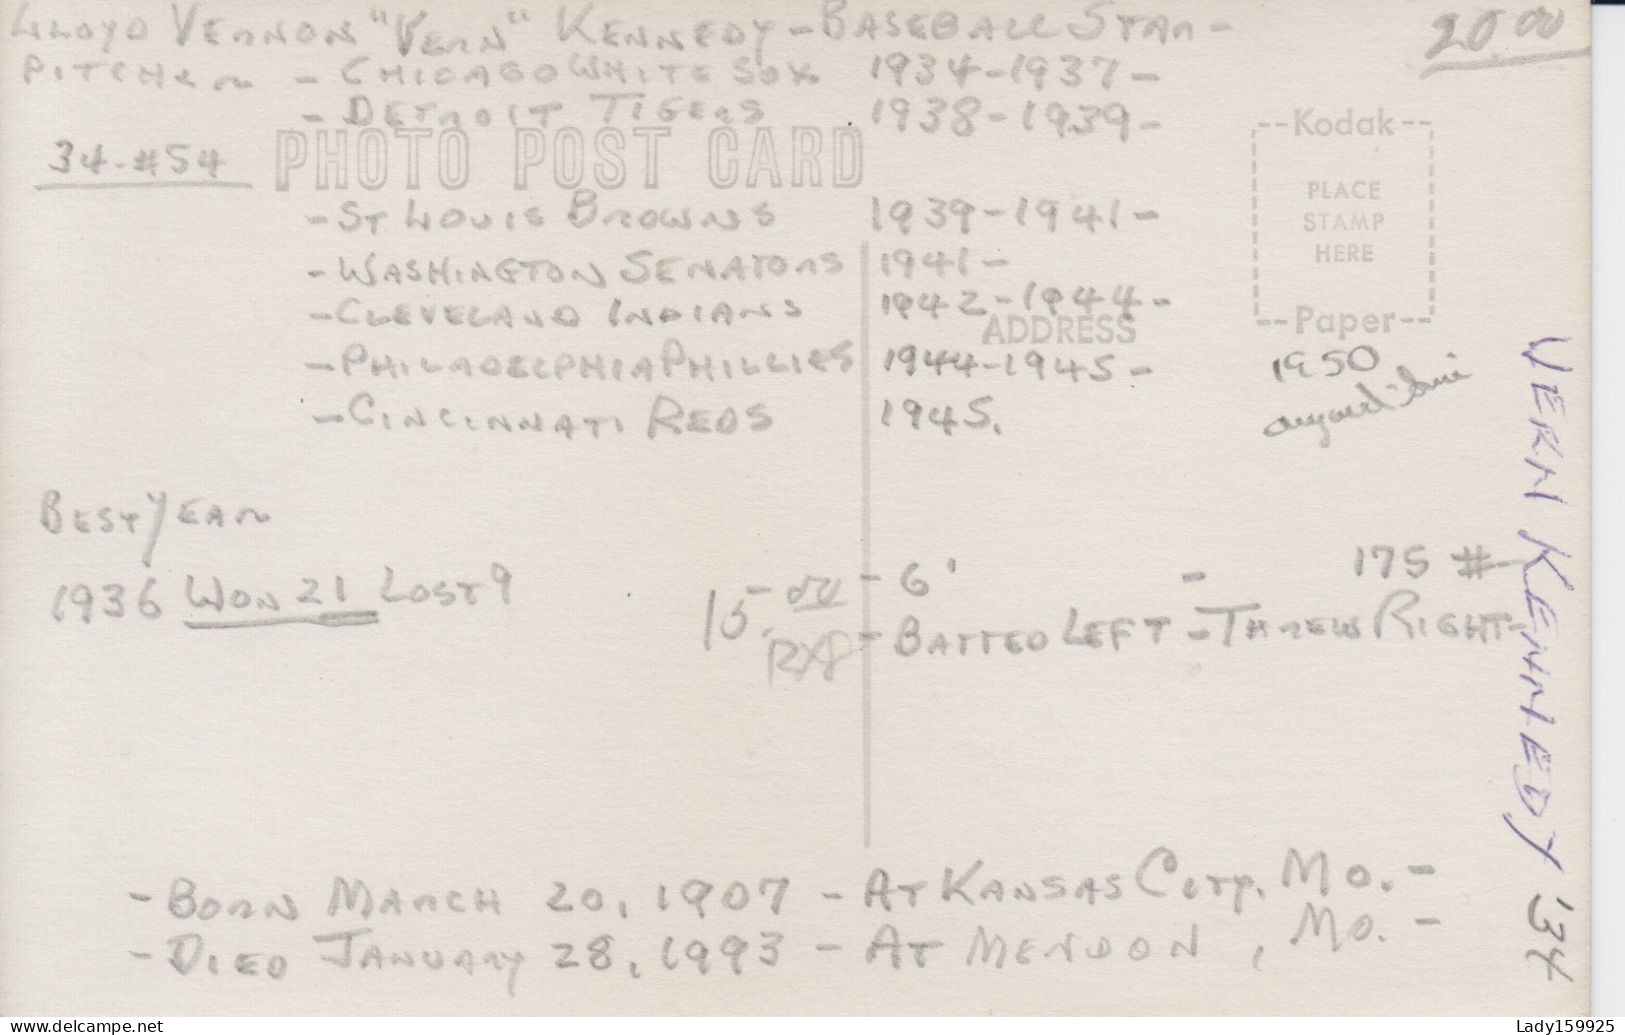 Lloyd Vernon "Vern" Kennedy - Baseball Star -
20 00
Pitcher - Chicago White Sox 1934-1937 -
- Detroit Tigers 1938-1939 -
34-#54
PHOTO POST CARD
--Kodak--
PLACE
STAMP
HERE
--Paper--
- St Louis Browns 1939-1941 -
- Washington Senators 1941 -
- Cleveland Indians 1942-1944 -
ADDRESS
- Philadelphia Phillies 1944-1945 -
- Cincinnati Reds 1945.
1950
Best Year
1936 Won 21 Lost 9
15-
- 6' - 175 #-
- Batted Left - Threw Right -
- Born March 20, 1907 - At Kansas City, Mo. -
- Died January 28, 1993 - At Mendon, Mo. -
VERN KENNEDY '34
www.delcampe.net
Lady159925